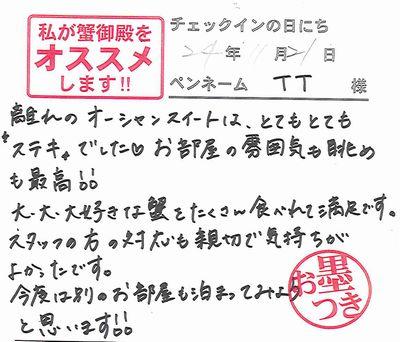 私が蟹御殿を
オススメ
します!!
チェックインの日にち
24年11月21日
ペンネーム TT 様
離れのオーシャンスイートは、とてもとても
"ステキ"でした♡お部屋の雰囲気も眺め
も最高!!
大・大・大好きな蟹をたくさん食べれて満足です。
スタッフの方の対応も親切で気持ちが
よかったです。
今度は別のお部屋も泊まってみよう
と思います!!
お墨つき